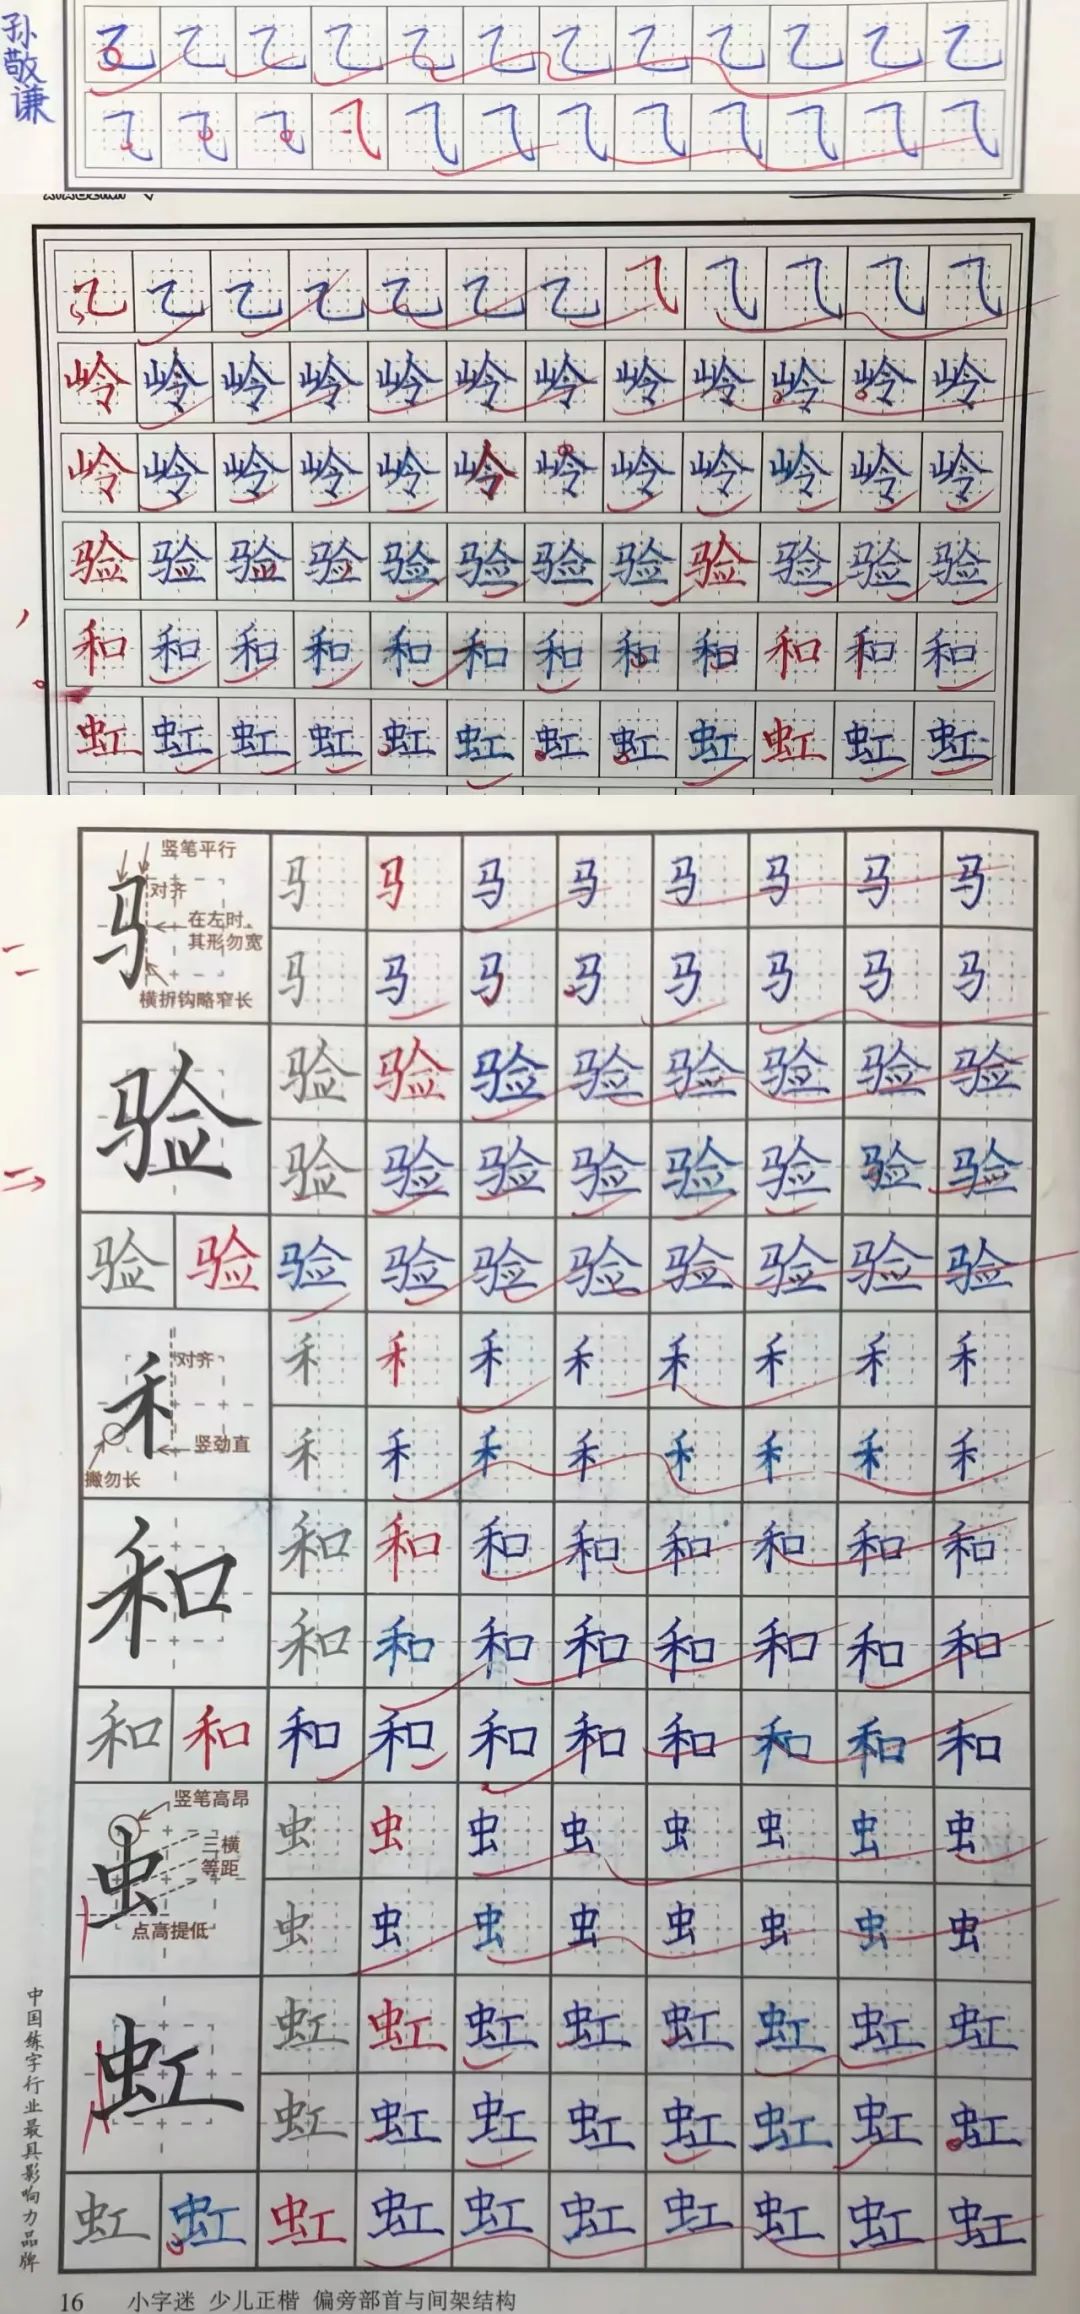 孙敬谦
乙 乙 乙 乙 乙 乙 乙 乙 乙 乙 乙 乙
⺄ ⺄ ⺄ ⺄ ⺄ ⺄ ⺄ ⺄ ⺄ ⺄ ⺄ ⺄
乙 乙 乙 乙 乙 乙 乙 ⺄ ⺄ ⺄ ⺄ ⺄
岭 岭 岭 岭 岭 岭 岭 岭 岭 岭 岭 岭
岭 岭 岭 岭 岭 岭 岭 岭 岭 岭 岭 岭
验 验 验 验 验 验 验 验 验 验 验 验
和 和 和 和 和 和 和 和 和 和 和 和
虹 虹 虹 虹 虹 虹 虹 虹 虹 虹 虹 虹
竖笔平行
对齐
在左时，
其形勿宽
横折钩略窄长
马 马 马 马 马 马 马 马 马
马 马 马 马 马 马 马 马
验 验 验 验 验 验 验 验 验
验 验 验 验 验 验 验 验
验 验 验 验 验 验 验 验 验 验
对齐
竖劲直
撇勿长
禾 禾 禾 禾 禾 禾 禾 禾 禾
禾 禾 禾 禾 禾 禾 禾 禾
和 和 和 和 和 和 和 和 和
和 和 和 和 和 和 和 和
和 和 和 和 和 和 和 和 和 和
竖笔高昂
三横
等距
点高提低
虫 虫 虫 虫 虫 虫 虫 虫 虫
虫 虫 虫 虫 虫 虫 虫 虫
虹 虹 虹 虹 虹 虹 虹 虹 虹
虹 虹 虹 虹 虹 虹 虹 虹
虹 虹 虹 虹 虹 虹 虹 虹 虹 虹
中国练字行业最具影响力品牌
16 小字迷 少儿正楷 偏旁部首与间架结构